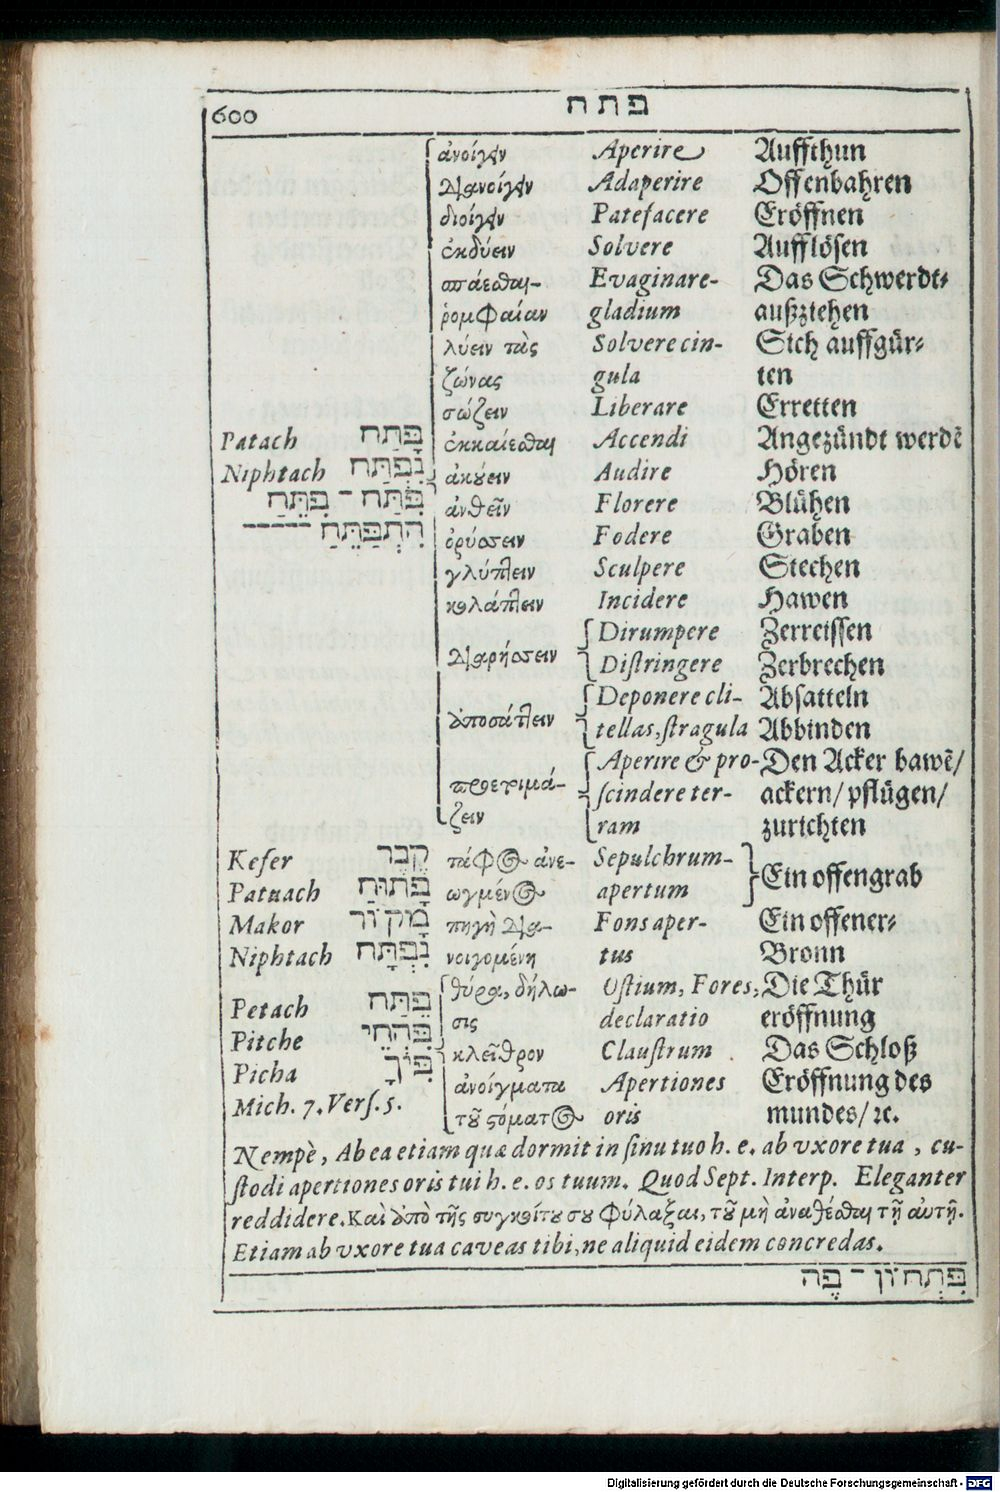 600 פתח
ἀνοίγειν Aperire Auffthun
διανοίγειν Adaperire Offenbahren
διοίγειν Patefacere Eröffnen
ἐκδύειν Solvere Aufflösen
σπάεσθαι- Evaginare- Das Schwerdt-
ῥομφαίαν gladium außziehen
λύειν τὰς Solvere cin- Sich auffgür-
ζώνας gula ten
σώζειν Liberare Erretten
Patach פָּתַח ἐκκαίεσθαι Accendi Angezündt werdẽ
Niphtach נִפְתַּח ἀκούειν Audire Hören
פִּתַּח - פִּתֵּחַ ἀνθεῖν Florere Blühen
הִתְפַּתֵּחַ ----- ὀρύσσειν Fodere Graben
γλύπτειν Sculpere Stechen
κολάπτειν Incidere Hawen
διαρήσσειν Dirumpere Zerreissen
Distringere Zerbrechen
ἀποσάττειν Deponere cli- Absatteln
tellas, stragula Abbinden
προετοιμά- Aperire & pro- Den Acker bawẽ/
ζειν scindere ter- ackern/ pflügen/
ram zurichten
Kefer קֶבֶר τάφος ἀνε- Sepulchrum- Ein offengrab
Patuach פָּתוּחַ ωγμένος apertum
Makor מָקוֹר πηγὴ δια- Fons aper- Ein offener-
Niphtach נִפְתָּח νοιγομένη tus Bronn
Petach פֶּתַח θύρα, δήλω- Ostium, Fores, Die Thür
Pitche פִּתְחֵי σις declaratio eröffnung
Picha פִּיךָ κλεῖθρον Claustrum Das Schloß
Mich. 7. Vers. 5. ἀνοίγματα Apertiones Eröffnung des
τοῦ στόματος oris mundes/ ꝛc.
Nempè, Ab ea etiam quæ dormit in sinu tuo h. e. ab vxore tua, cu-
stodi apertiones oris tui h. e. os tuum. Quod Sept. Interp. Eleganter
reddidere. Καὶ ἀπὸ τῆς συγκοίτου σου φύλαξαι, τοῦ μὴ ἀναθέσθαι τῇ αὐτῇ.
Etiam ab vxore tua caveas tibi, ne aliquid eidem concredas.
פִּתְחוֹן - פֶּה
Digitalisierung gefördert durch die Deutsche Forschungsgemeinschaft - DFG